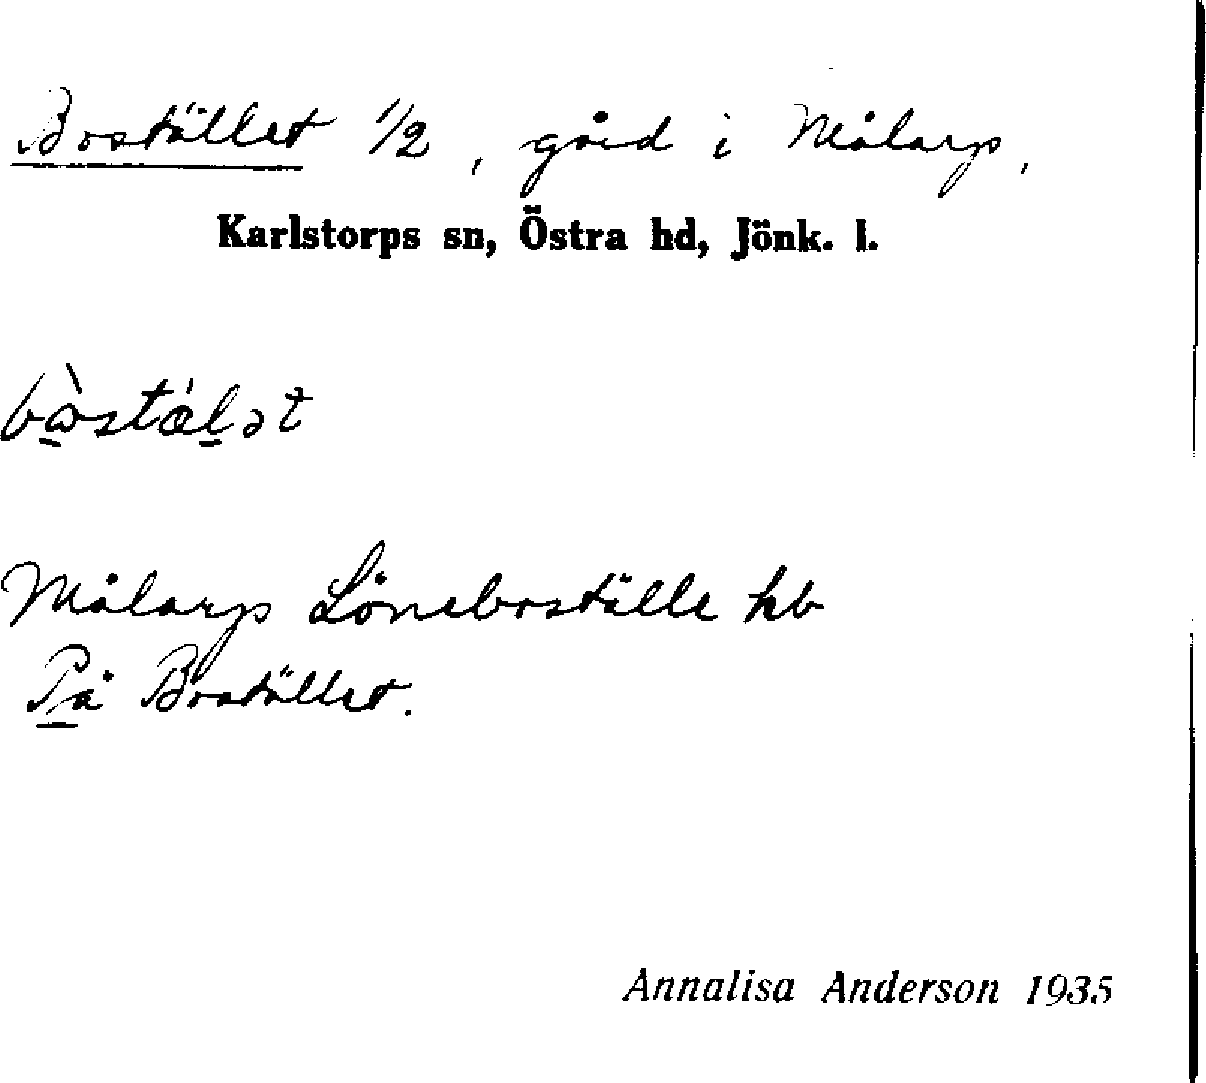 Bostället 1/2, gård i Målarp,
Karlstorps sn, Östra hd, Jönk. l.
bòstälət
Målarp Löneboställe hb
På Bostället.
Annalisa Anderson 1935